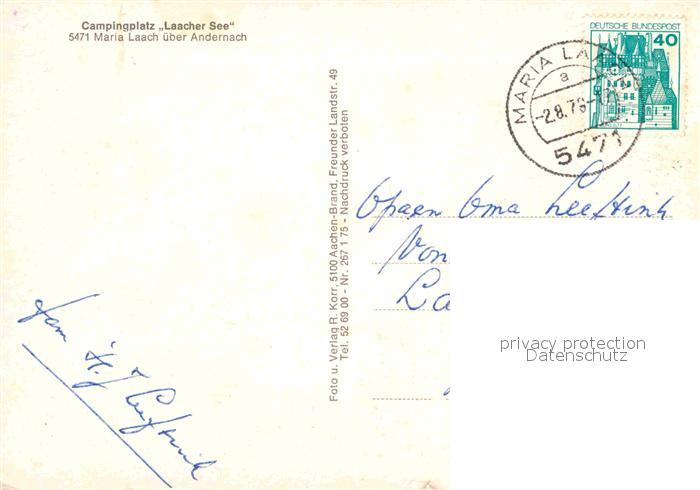 Campingplatz „Laacher See“
5471 Maria Laach über Andernach
DEUTSCHE BUNDESPOST
40
MARIA LAA
a
-2.8.78-17
5471
Foto u. Verlag R. Korr, 5100 Aachen-Brand, Freunder Landstr. 49
Tel. 52 69 00 - Nr. 267 1 75 - Nachdruck verboten
Oma
Von
La
privacy protection
Datenschutz
Fam